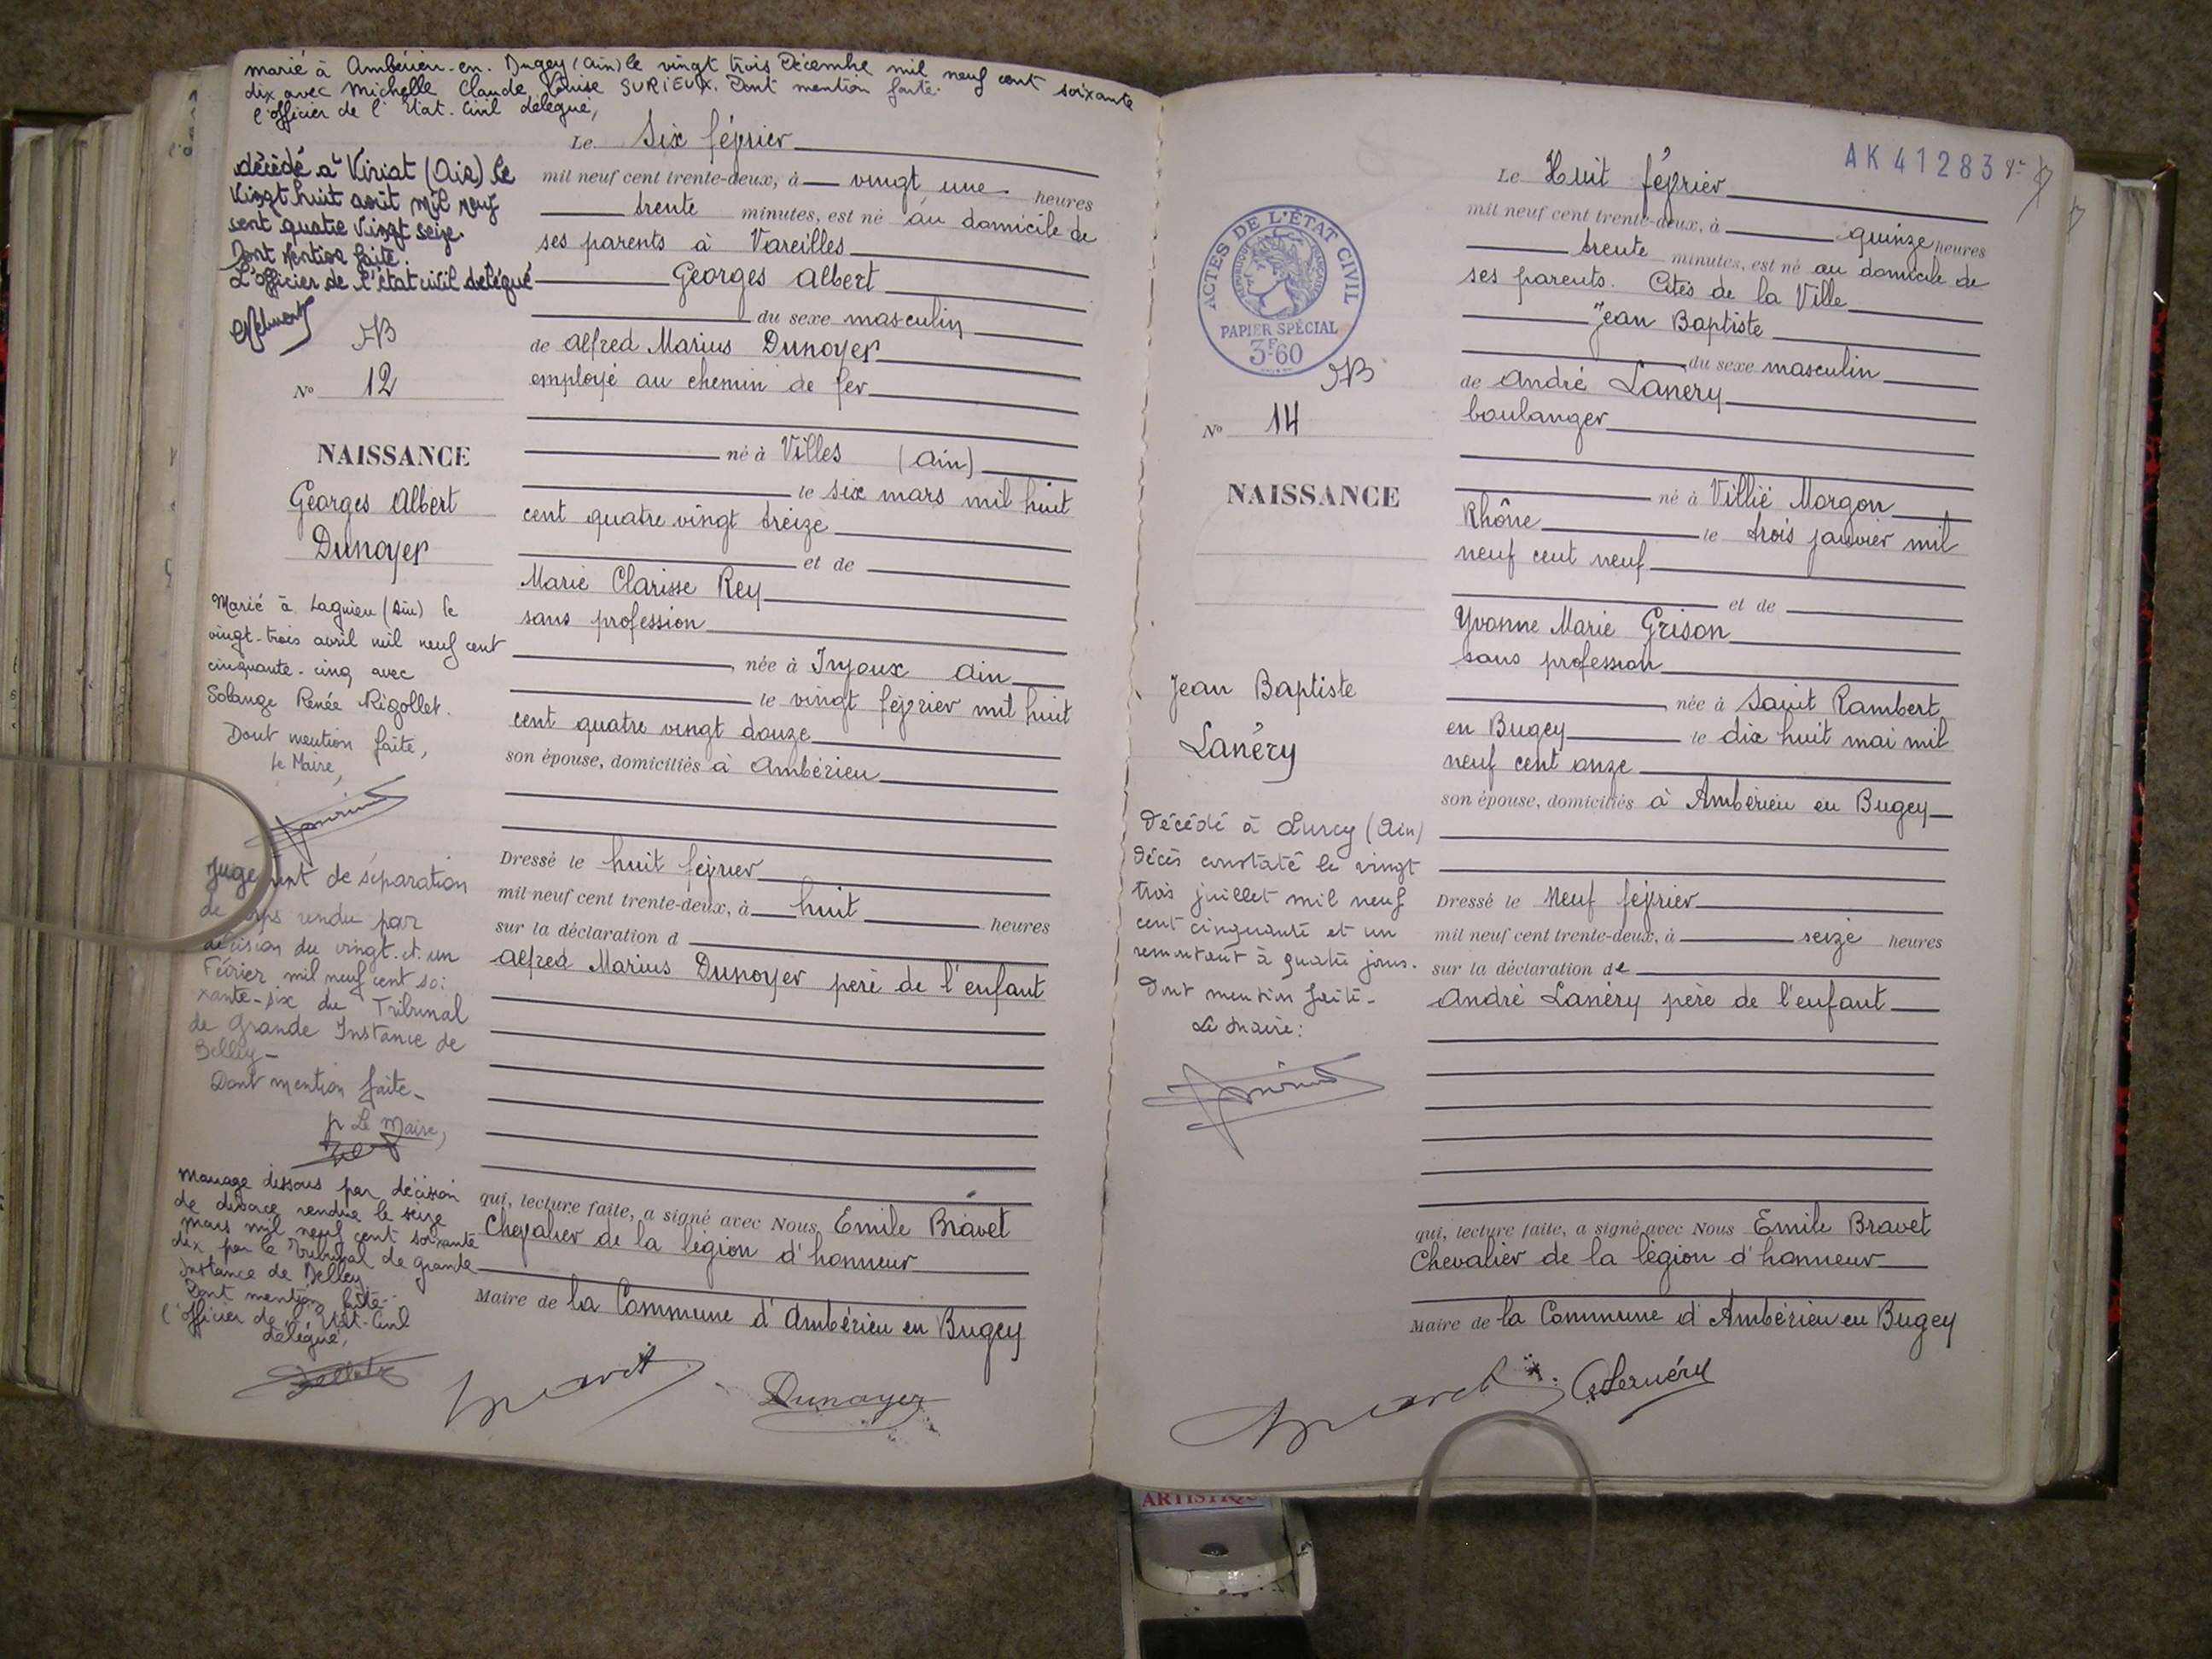 marié à Ambérieu-en-Bugey (Ain) le vingt trois Décembre mil neuf cent soixante
dix avec Michelle Claude Louise SURIEUX. Dont mention faite.
l'officier de l'Etat-Civil délégué,
décédé à Viriat (Ain) le
vingt huit août mil neuf
cent quatre vingt seize.
Dont mention faite.
L'officier de l'état civil délégué
N° 12
NAISSANCE
Georges Albert
Dunoyer
Marié à Lagnieu (Ain) le
vingt-trois avril mil neuf cent
cinquante-cinq avec
Solange Renée Rigollet.
Dont mention faite,
le Maire,
Jugement de séparation
de corps rendu par
décision du vingt-et-un
Février mil neuf cent soi
xante-six du Tribunal
de Grande Instance de
Belley-
Dont mention faite-
p Le Maire,
Mariage dissous par décision
de divorce rendue le seize
mars mil neuf cent soixante
dix par le Tribunal de grande
instance de Belley.
Dont mention faite.
l'officier de l'Etat-Civil
délégué,
Le Six février
mil neuf cent trente-deux, à vingt une heures
trente minutes, est né au domicile de
ses parents à Vareilles
Georges Albert
du sexe masculin
de Alfred Marius Dunoyer
employé au chemin de fer
né à Villes (Ain)
le six mars mil huit
cent quatre vingt treize
et de
Marie Clarisse Rey
sans profession
, née à Injoux Ain
le vingt février mil huit
cent quatre vingt douze
son épouse, domiciliés à Ambérieu
Dressé le huit février
mil neuf cent trente-deux, à huit heures
sur la déclaration d
Alfred Marius Dunoyer père de l'enfant
qui, lecture faite, a signé avec Nous, Emile Bravet
Chevalier de la légion d'honneur
Maire de la Commune d'Ambérieu en Bugey
Dunoyer
AK 41283
ACTES DE L'ÉTAT CIVIL
RÉPUBLIQUE FRANÇAISE
PAPIER SPÉCIAL
3F60
N° 14
NAISSANCE
Jean Baptiste
Lanéry
Décédé à Lurcy (Ain)
décès constaté le vingt
trois juillet mil neuf
cent cinquante et un
remontant à quatre jours.
Dont mention faite-
Le Maire:
Le Huit février
mil neuf cent trente-deux, à quinze heures
trente minutes, est né au domicile de
ses parents. Cités de la Ville
Jean Baptiste
du sexe masculin
de André Lanery
boulanger
né à Villié Morgon
Rhône le trois janvier mil
neuf cent neuf
et de
Yvonne Marie Grison
sans profession
, née à Saint Rambert
en Bugey le dix huit mai mil
neuf cent onze
son épouse, domiciliés à Ambérieu en Bugey
Dressé le Neuf février
mil neuf cent trente-deux, à seize heures
sur la déclaration de
André Lanéry père de l'enfant
qui, lecture faite, a signé avec Nous Emile Bravet
Chevalier de la légion d'honneur
Maire de la Commune d'Ambérieu en Bugey
ARTISTIQU